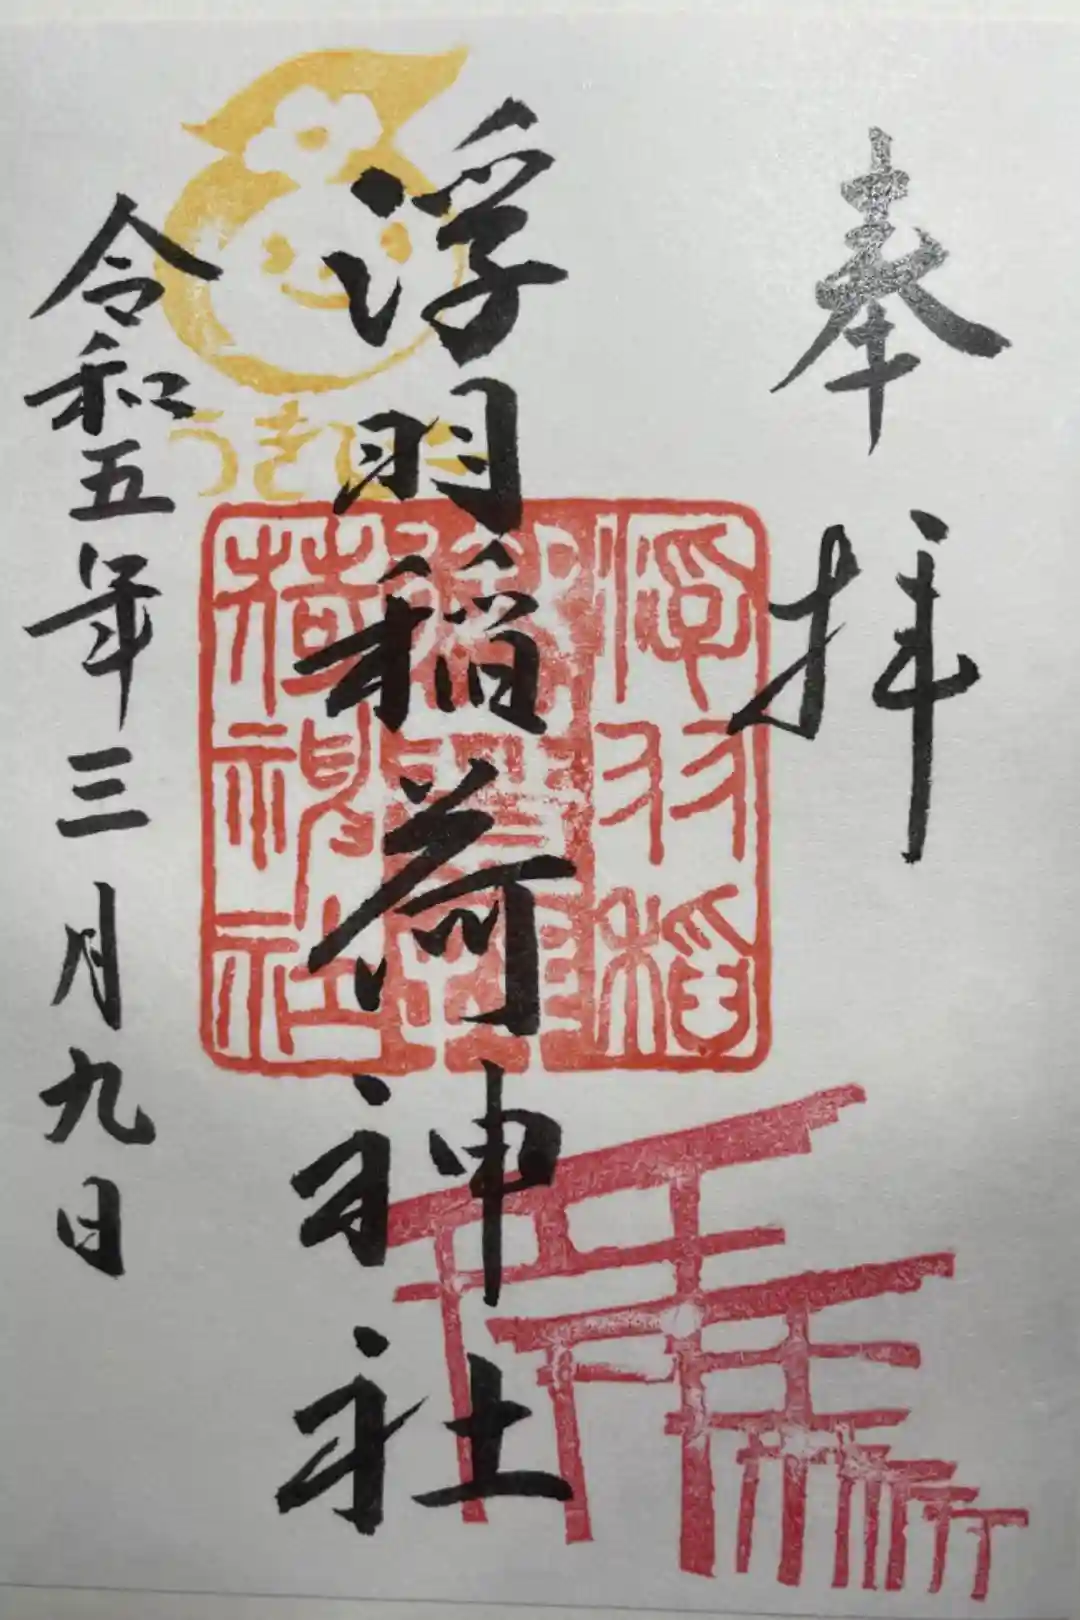 奉拝
浮羽稲荷神社
令和五年三月九日
浮羽稲
荷神社